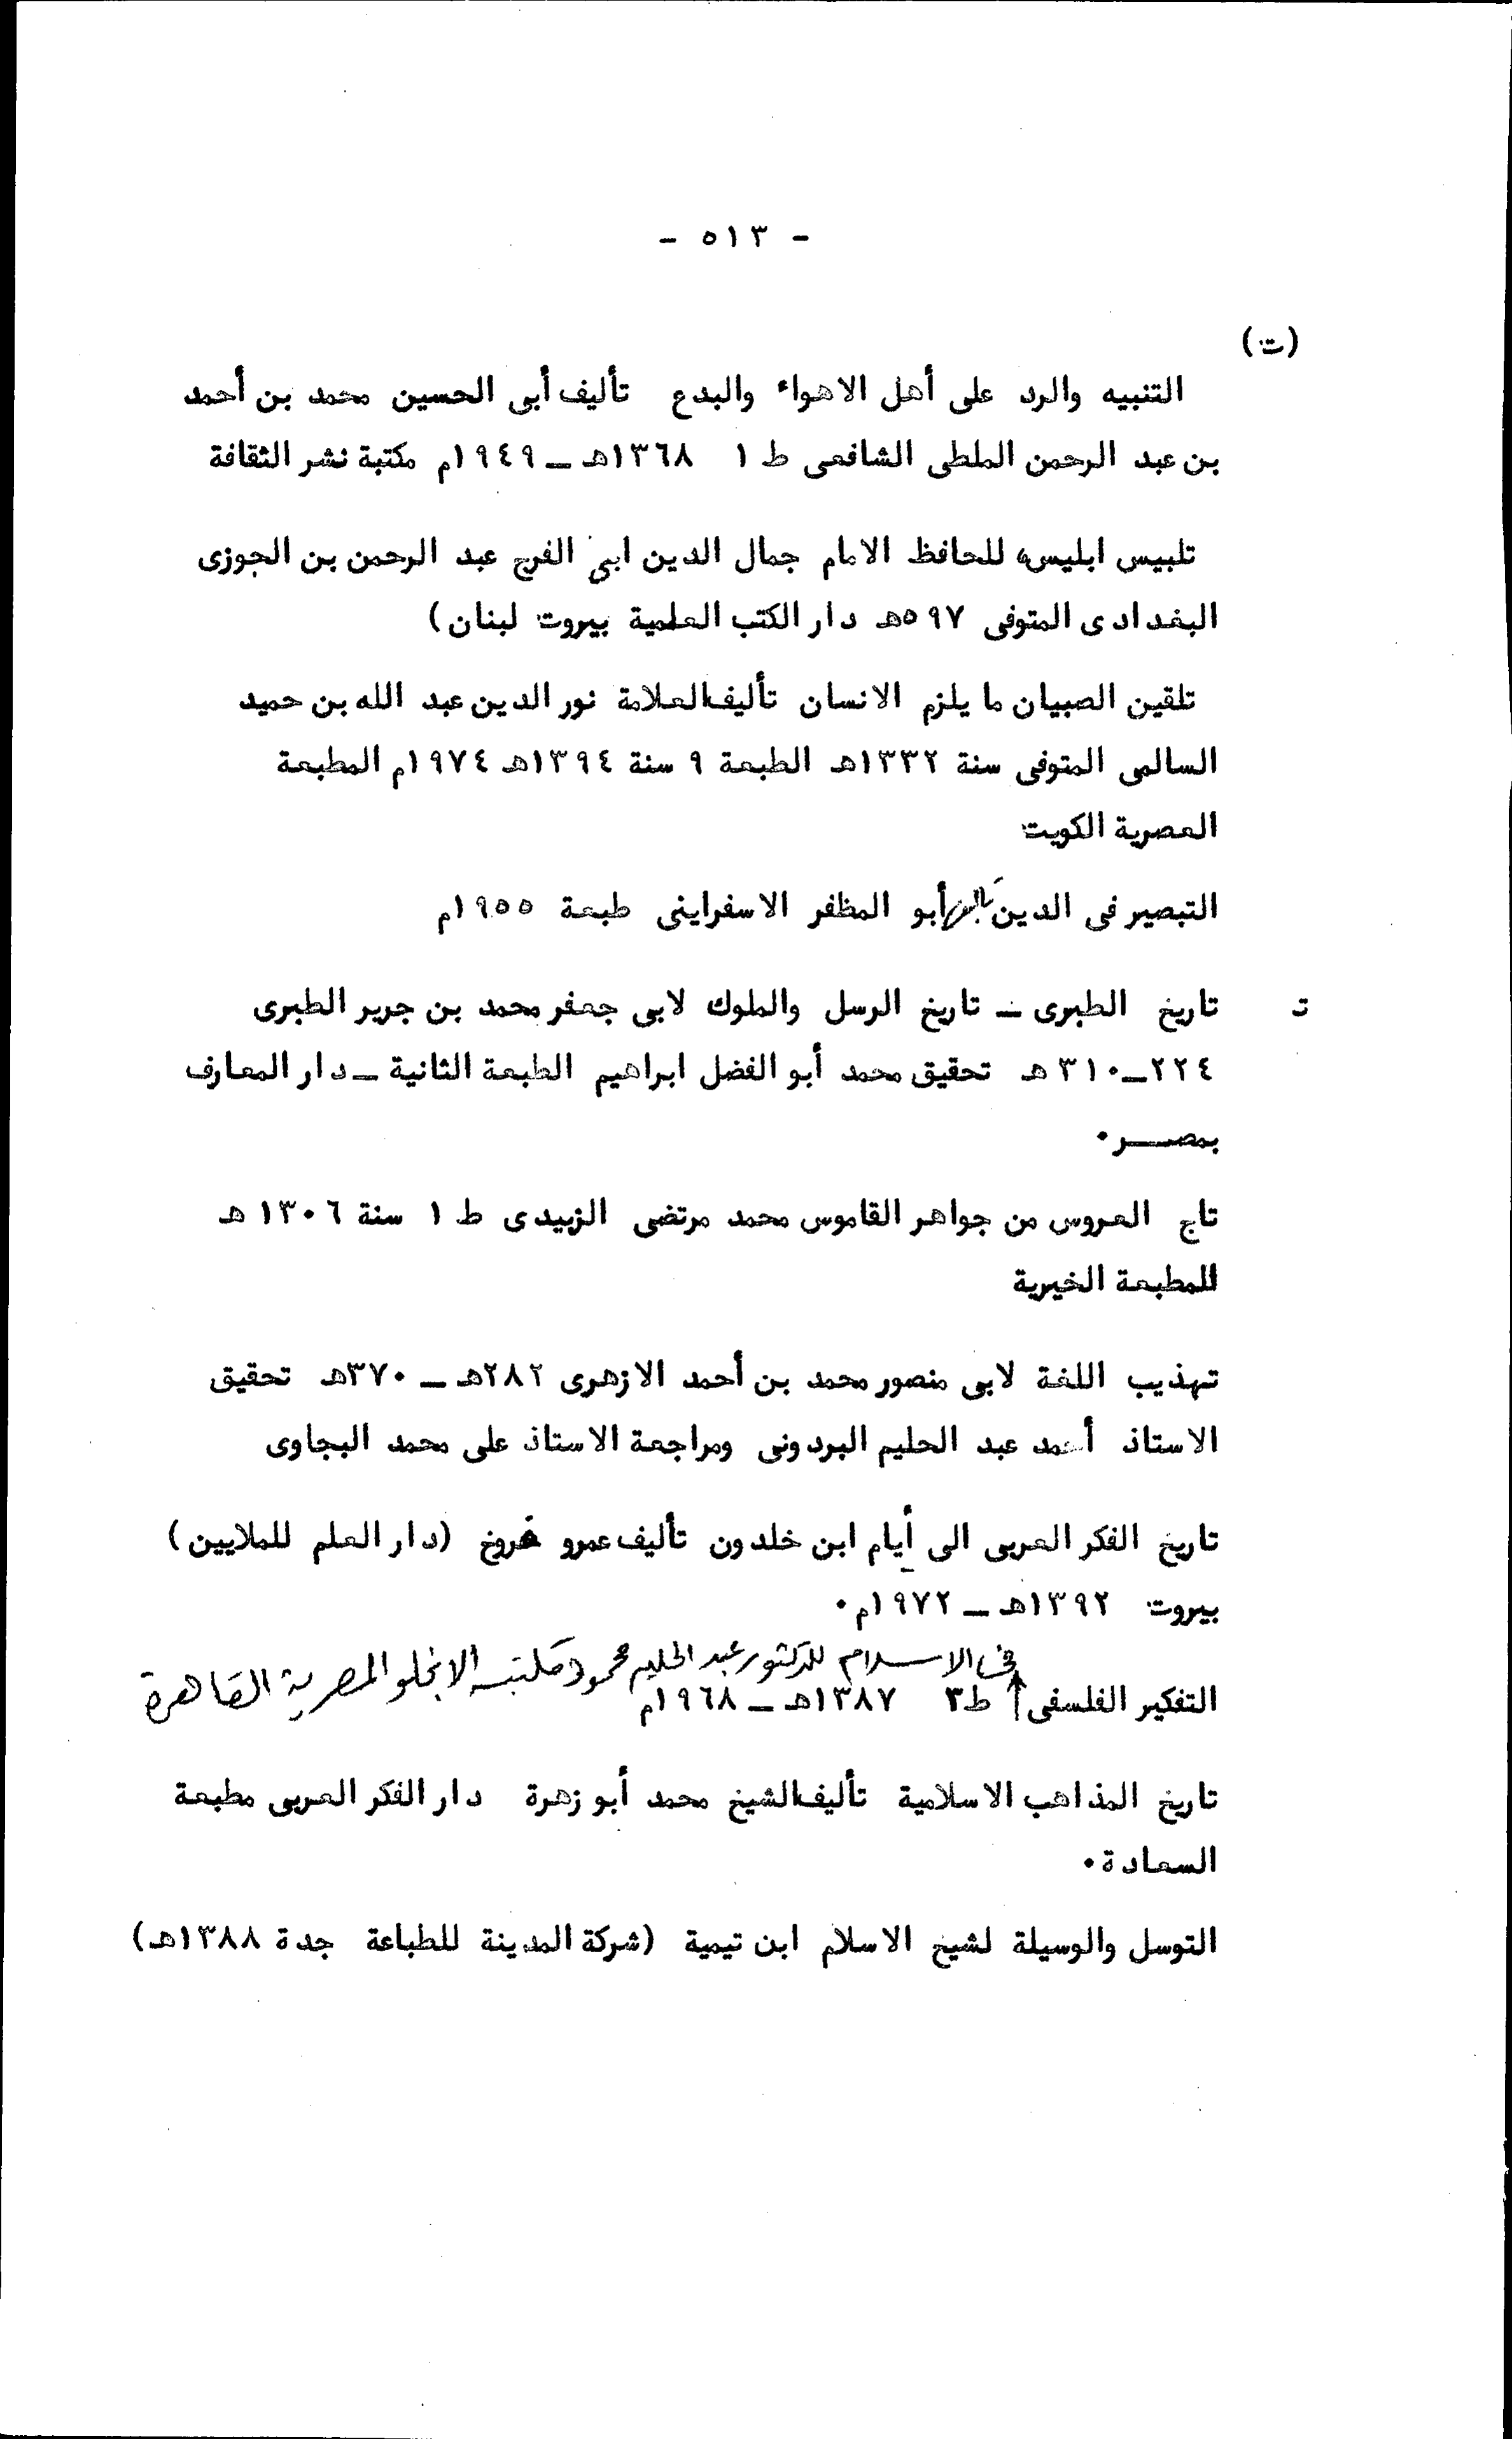 - ٥١٣ -
(ت)
التنبيه والرد على أهل الاهواء والبدع تأليف أبى الحسين محمد بن أحمد
بن عبد الرحمن الملطى الشافعى ط ١ ١٣٦٨هـ ــ ١٩٤٩م مكتبة نشر الثقافة
تلبيس ابليس للحافظ الامام جمال الدين ابى الفرج عبد الرحمن بن الجوزى
البغدادى المتوفى ٥٩٧هـ دار الكتب العلمية بيروت لبنان)
تلقين الصبيان ما يلزم الانسان تأليف العلامة نور الدين عبد الله بن حميد
السالمى المتوفى سنة ١٣٣٢هـ الطبعة ٩ سنة ١٣٩٤هـ ١٩٧٤م المطبعة
العصرية الكويت
التبصير فى الدين أبو المظفر الاسفراينى طبعة ١٩٥٥م
ت تاريخ الطبرى ــ تاريخ الرسل والملوك لابى جعفر محمد بن جرير الطبرى
٢٢٤ــ٣١٠ هـ تحقيق محمد أبو الفضل ابراهيم الطبعة الثانية ــ دار المعارف
بمصـــر٠
تاج العروس من جواهر القاموس محمد مرتضى الزبيدى ط ١ سنة ١٣٠٦ هـ
للمطبعة الخيرية
تهذيب اللغة لابى منصور محمد بن أحمد الازهرى ٢٨٢هـ ــ ٣٧٠هـ تحقيق
الاستاذ أحمد عبد الحليم البردونى ومراجعة الاستاذ على محمد البجاوى
تاريخ الفكر العربى الى أيام ابن خلدون تأليف عمرو فروخ (دار العلم للملايين)
بيروت ١٣٩٢هـ ــ ١٩٧٢م٠
فى الاسلام للدكتور عبد الحليم محمود مكتبة الانجلو المصرية القاهرة
التفكير الفلسفى ط٣ ١٣٨٧هـ ــ ١٩٦٨م
تاريخ المذاهب الاسلامية تأليف الشيخ محمد أبو زهرة دار الفكر العربى مطبعة
السعادة٠
التوسل والوسيلة لشيخ الاسلام ابن تيمية (شركة المدينة للطباعة جدة ١٣٨٨هـ)